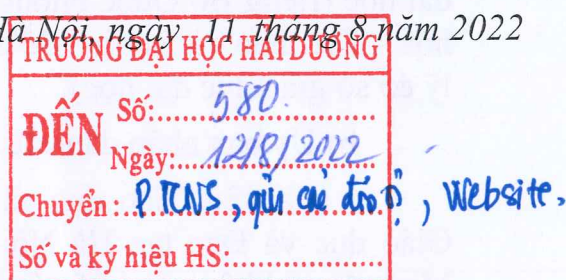 Hà Nội, ngày 11 tháng 8 năm 2022
TRƯỜNG ĐẠI HỌC HẢI DƯƠNG
ĐẾN
Số:.....580.....
Ngày:....12/8/2022
Chuyển:..P.TCNS, gửi các đ/vị, Website.
Số và ký hiệu HS:..........